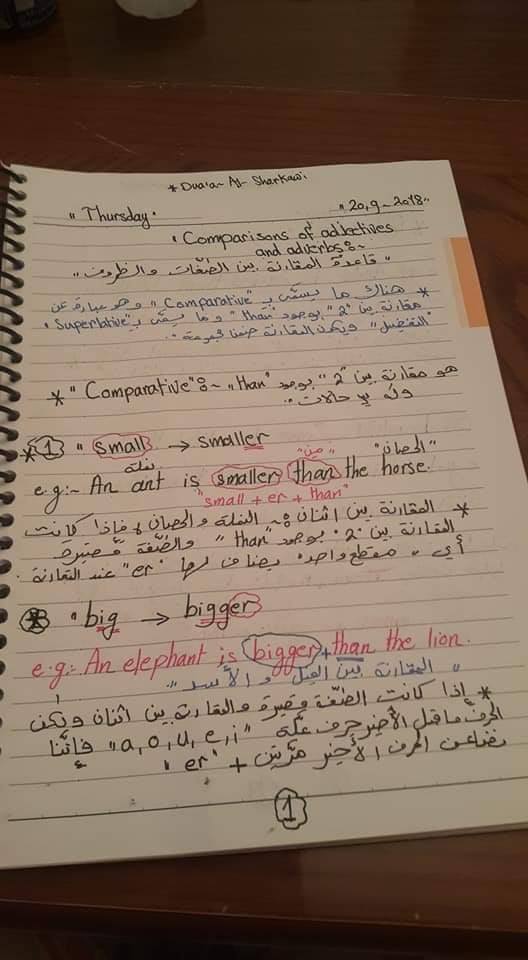 * Dua'a Al-Sharkawi
"Thursday" "20,9-2018"
"Comparisons of adjectives
and adverbs:~
"قاعدة المقارنة بين الصفات والظروف"
* هناك ما يسمّى بـ "Comparative" وهو عبارة عن
مقارنة بين "2" بوجود "than" وما يسمّى بـ "Superlative"
"التفضيل" وتكون المقارنة ضمن مجموعة".
* "Comparative":~ هو مقارنة بين "2" بوجود "than"
وله حالات".
* 1 "small → smaller "الحصان"
نملة "من"
e.g:- An ant is smaller than the horse.
"small + er + than"
* المقارنة بين اثنان: النملة والحصان فإذا كانت
المقارنة بين "2" بوجود "than" والصّفة قصيرة
أي "مقطع واحد" يضاف لها "er" عند المقارنة
* "big → bigger
e.g:- An elephant is bigger + than the lion.
"المقارنة بين الفيل والأسد"
* إذا كانت الصّفة قصيرة والمقارنة بين اثنان ويكون
الحرف ما قبل الأخير حرف علّة "a, o, u, e, i" فإنّنا
نضاعف الحرف الأخير مرّتين + "er"
1